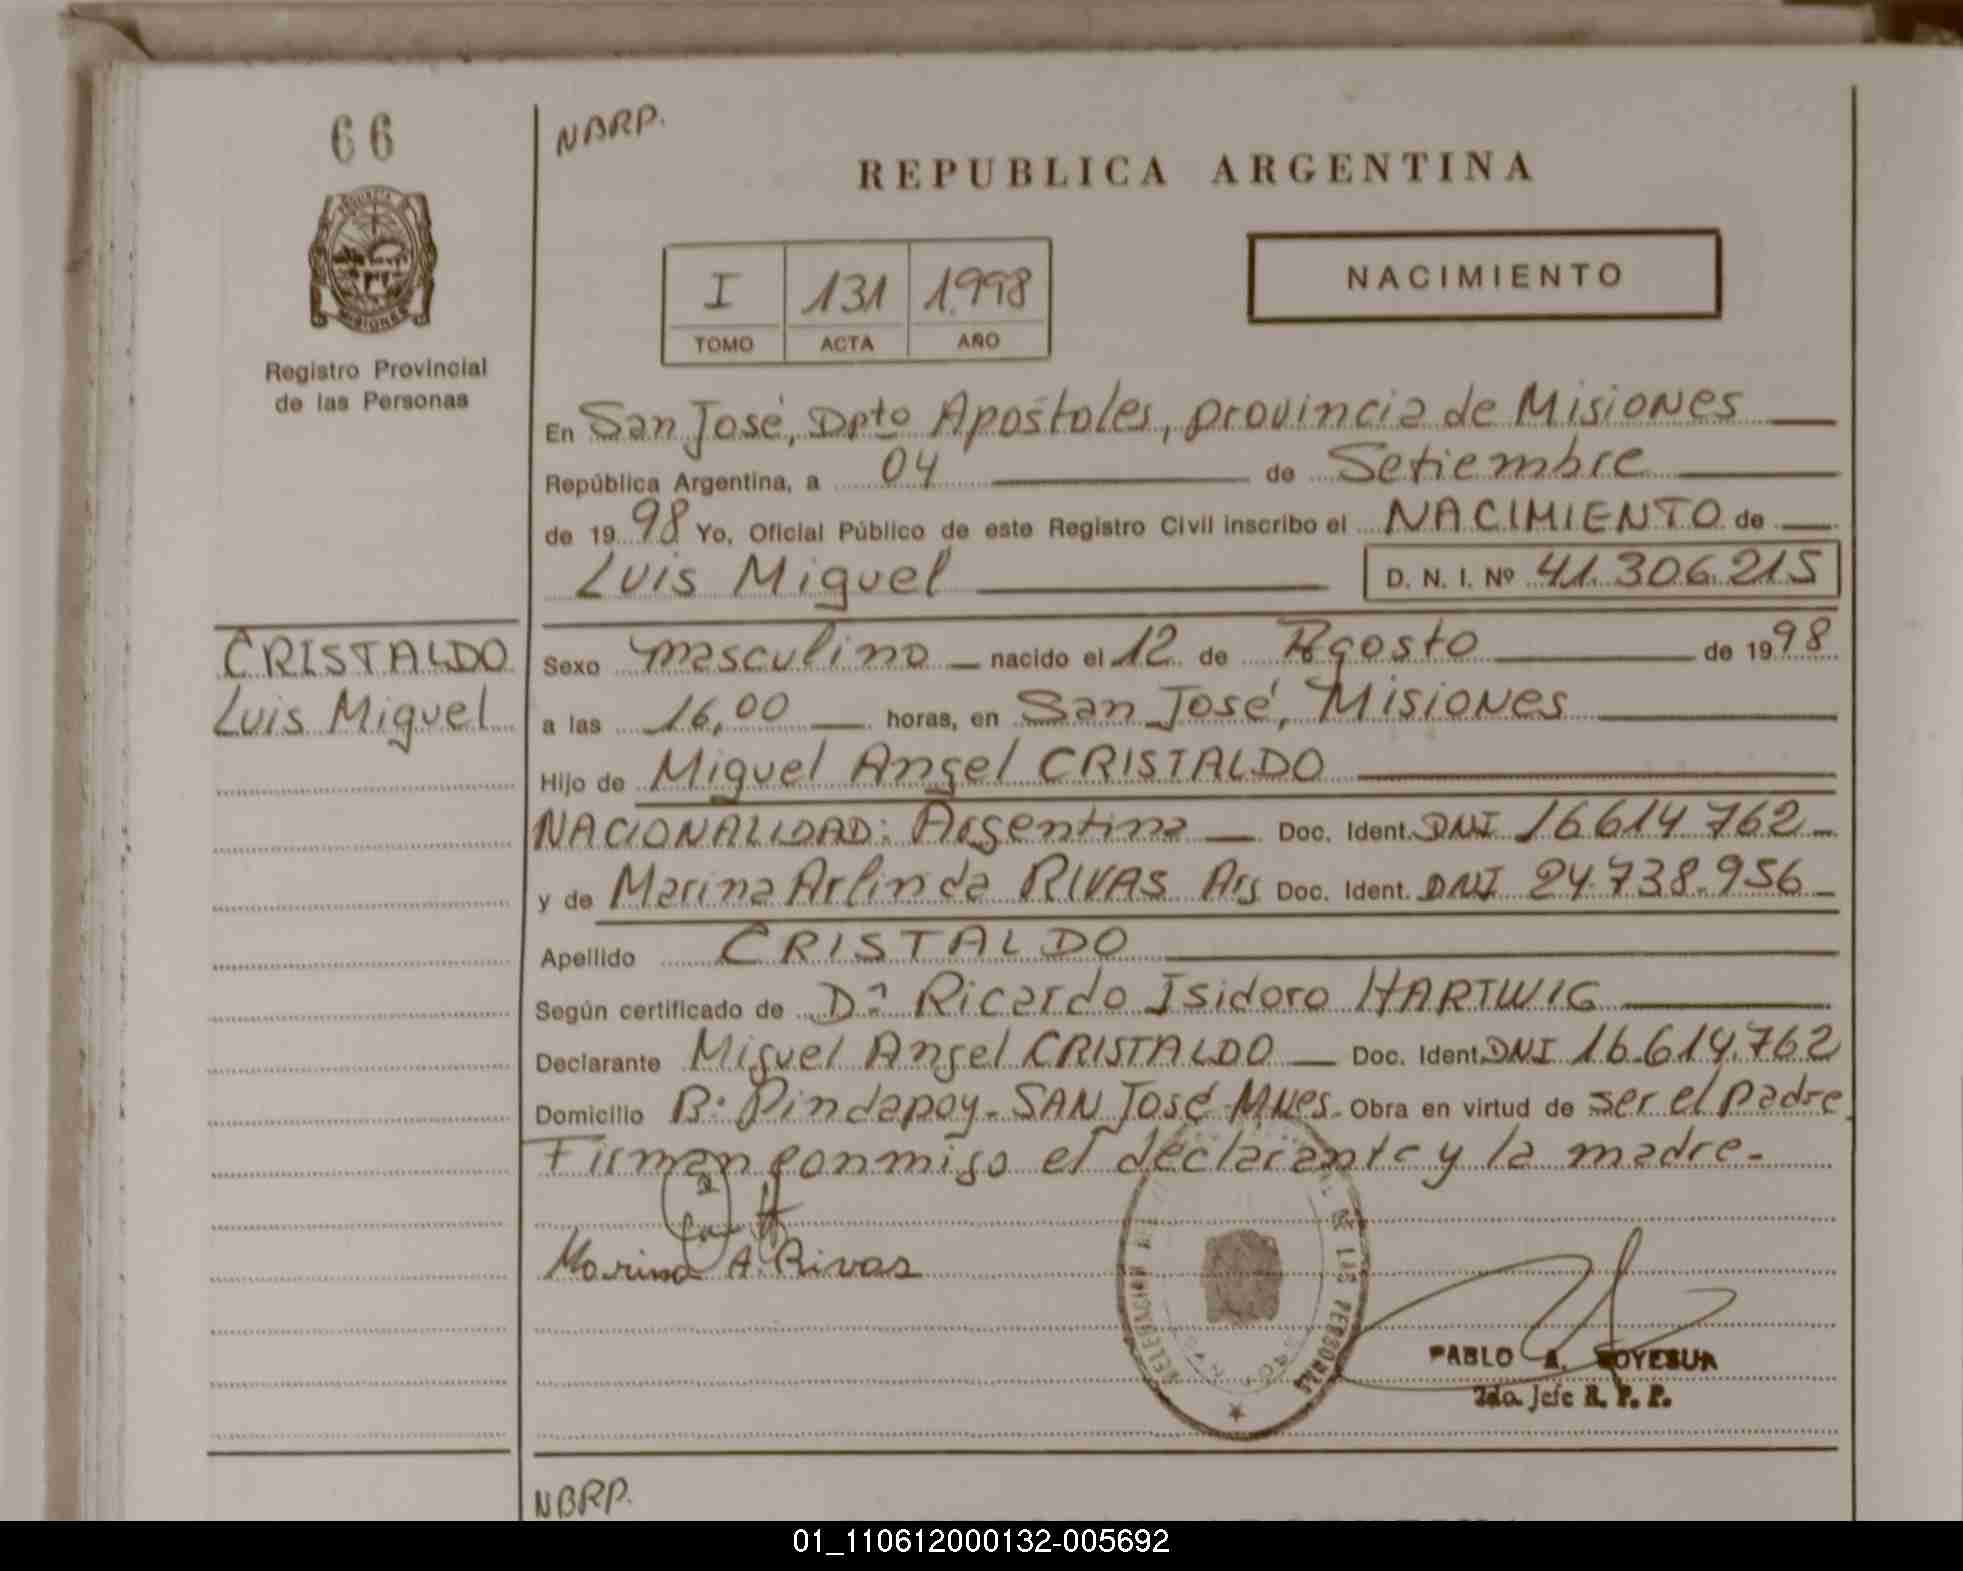 66
NBRP.
REPUBLICA ARGENTINA
PROVINCIA DE
MISIONES
Registro Provincial
de las Personas
I 131 1.998
TOMO ACTA AÑO
NACIMIENTO
En San José, Dpto Apóstoles, provincia de Misiones
República Argentina, a 04 de Setiembre
de 19 98 Yo, Oficial Público de este Registro Civil inscribo el NACIMIENTO de
Luis Miguel D. N. I. Nº 41.306.215
CRISTALDO
Luis Miguel
Sexo masculino nacido el 12 de Agosto de 19 98
a las 16,00 horas, en San José, Misiones
Hijo de Miguel Angel CRISTALDO
NACIONALIDAD: Argentina Doc. Ident. DNI 16614762
y de Marina Arlinda RIVAS Arg Doc. Ident. DNI 24.738.956
Apellido CRISTALDO
Según certificado de Dn Ricardo Isidoro HARTWIG
Declarante Miguel Angel CRISTALDO Doc. Ident. DNI 16.614.762
Domicilio Bº Pindapoy - SAN José - MNes. Obra en virtud de ser el padre
Firman conmigo el declarante y la madre.-
Marina A. Rivas
DE LAS PERSONAS
PABLO A.
2do. Jefe R. P. P.
NBRP.
01_110612000132-005692